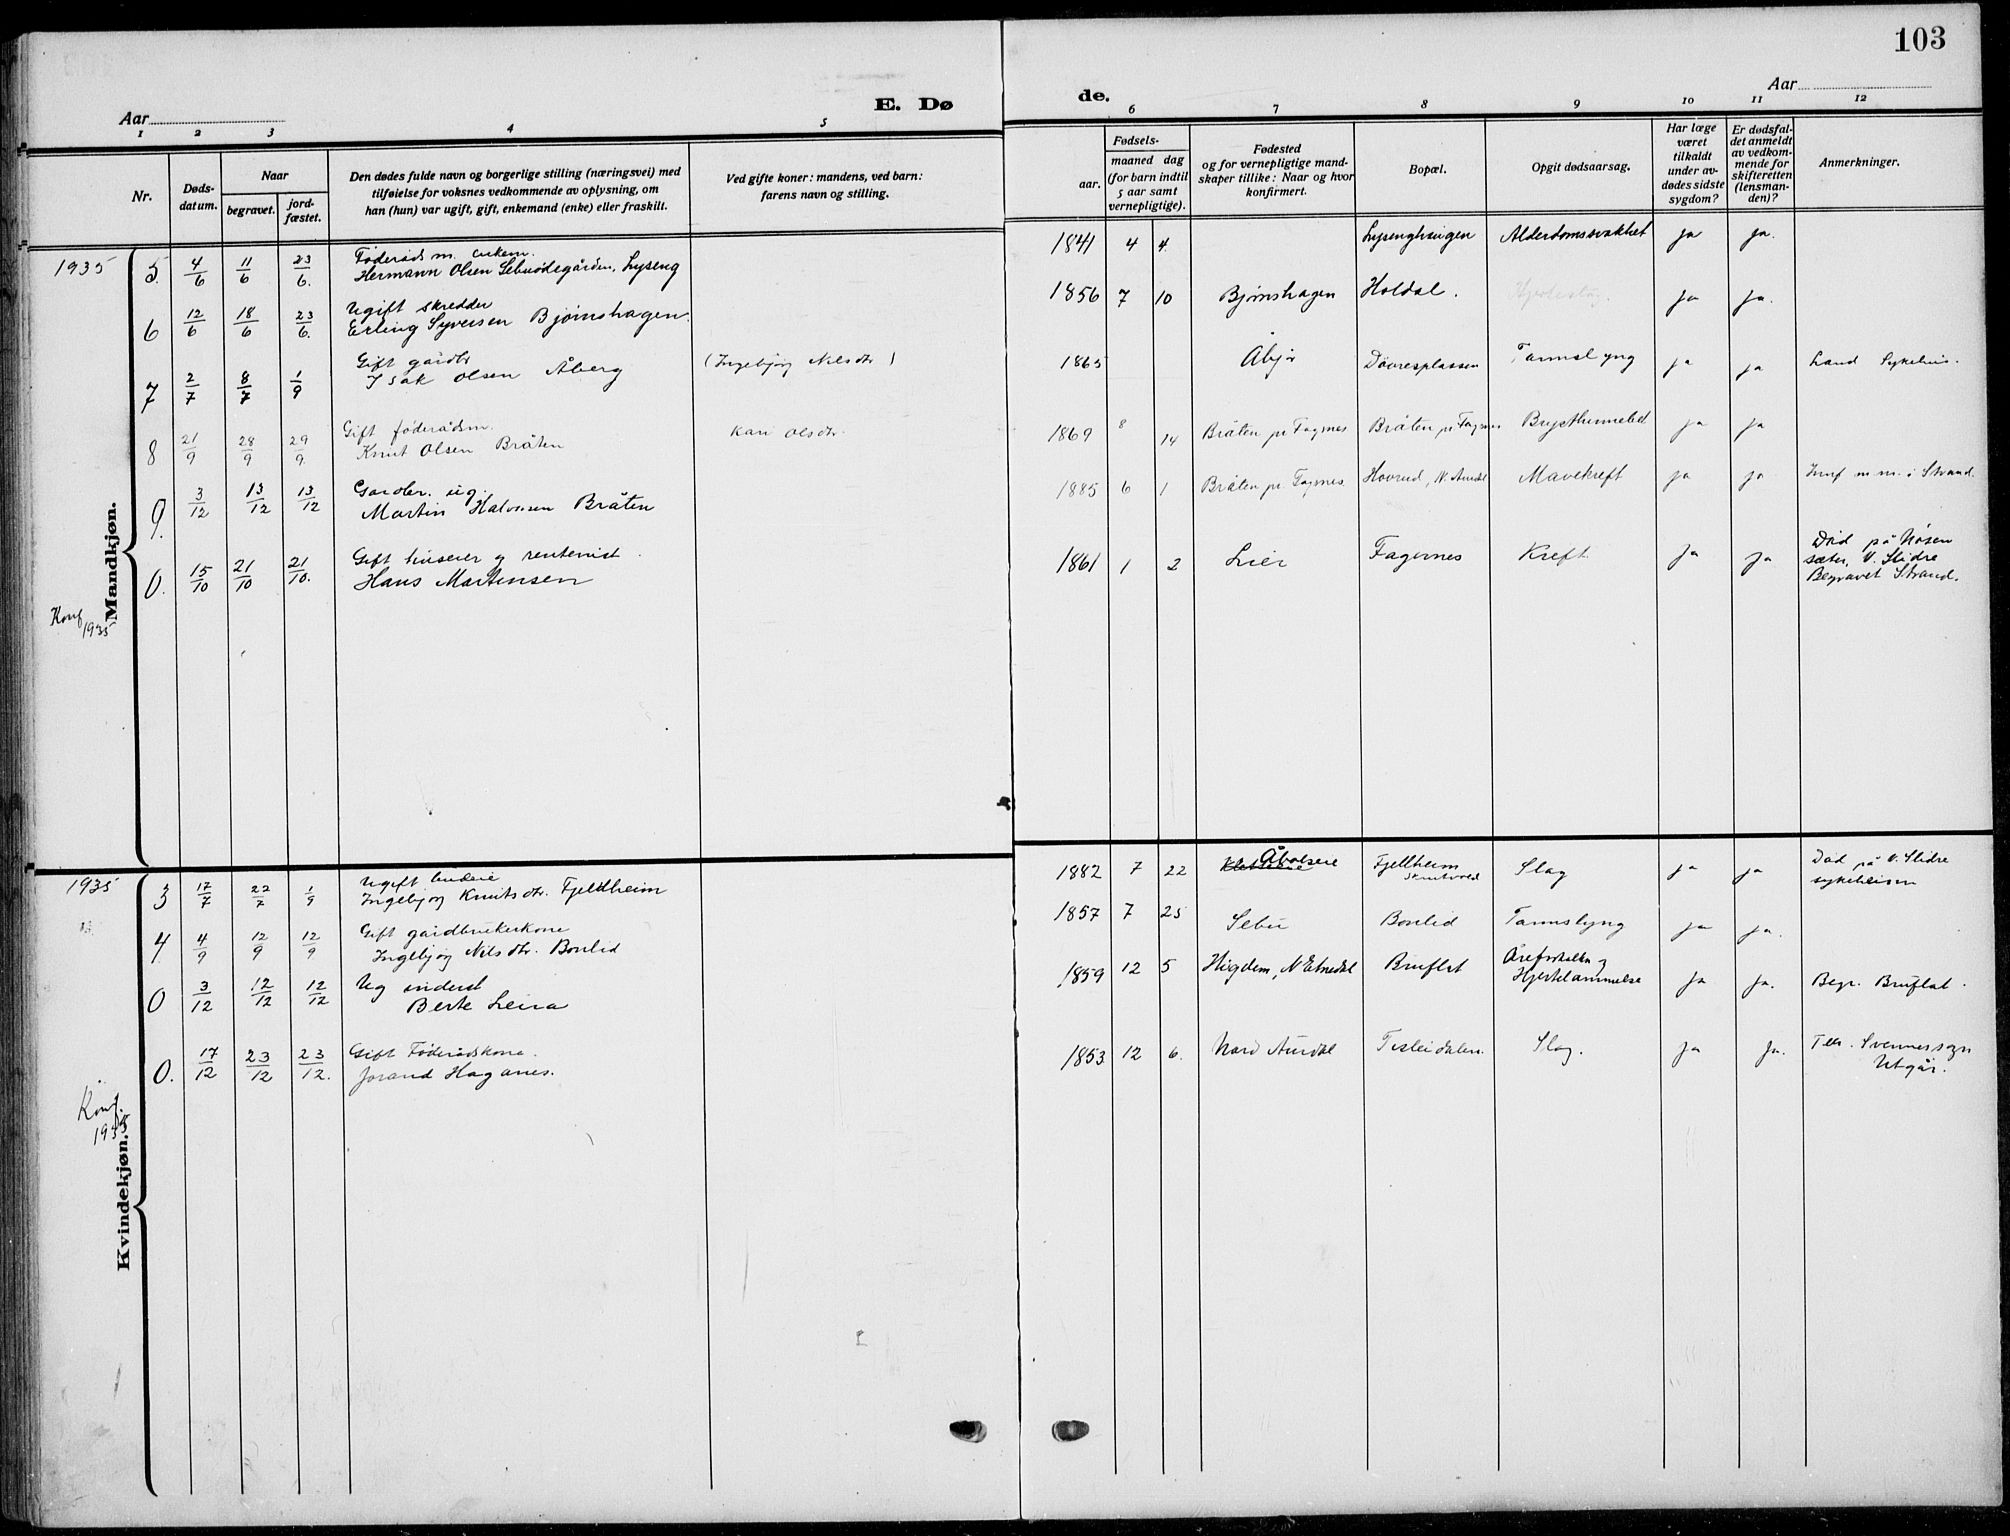 103
Aar
E. Dø
de.
Aar
1 2 3 4 5
6 7 8 9 10 11 12
Nr.
Døds-
datum.
Naar
begravet.
jord-
fæstet.
Den dødes fulde navn og borgerlige stilling (næringsvei) med
tilføielse for voksnes vedkommende av oplysning, om
han (hun) var ugift, gift, enkemand (enke) eller fraskilt.
Ved gifte koner: mandens, ved barn:
farens navn og stilling.
Fødsels-
aar.
maaned dag
(for barn indtil
5 aar samt
vernepligtige).
Fødested
og for vernepligtige mand-
skaper tillike: Naar og hvor
konfirmert.
Bopæl.
Opgit dødsaarsag.
Har læge
været
tilkaldt
under av-
dødes sidste
sygdom?
Er dødsfal-
det anmeldt
av vedkom-
mende for
skifteretten
(lensman-
den)?
Anmerkninger.
Mandkjøn.
1935 5. 4/6 11/6 23/6. Føderåds m. enkem.
Hermann Olsen Sebuødegården, Lyseng
1841 4 4. Lysenghaugen Alderdomssvakhet ja ja.
6 12/6 18/6 23/6. Ugift skredder
Erling Syversen Bjørnshagen.
1856 7 10 Bjørnshagen Holdal. ja ja.
7 2/7 8/7 1/9 Gift gårdbr
Isak Olsen Åberg (Ingebjørg Nilsdtr)
1865 Åbjør Døvresplassen Tarmslyng ja ja Land Sykehus.
8 21/9 28/9 29/9. Gift føderådsm.
Knut Olsen Bråten Kari Olsdtr.
1869 8 14 Bråten pr Fagernes Bråten pr Fagernes Brysthinnebet ja ja
9. 3/12 13/12 13/12 Gardbr. ug.
Martin Halvorsen Bråten
1885 6 1 Bråten pr. Fagernes Hovrud, N. Aurdal Mavekreft ja ja Innf m.m. i Strand.
0. 15/10 21/10 21/10. Gift huseier og rentenist.
Hans Martinsen
1861 1 2 Lier Fagernes Kreft. ja ja Død på Nøsen
sæter, V. Slidre
Begravet Strand.
Konf
1935
Kvindekjøn.
1935 3 17/7 22/7 1/9 Ugift budeie
Ingebjørg Knutsdtr. Fjellheim
1882 7 22 Åbølseie Fjellheim
Skrutvold Slag ja ja Død på V. Slidre
sykeheim
4 4/9 12/9 12/9 Gift gårdbrukerkone
Ingebjørg Nilsdtr. Bonlid
1857 7 25 Sebu Bonlid Tarmslyng ja ja.
0 3/12 12/12 12/12 Ug inderst
Berte Leira
1859 12 5 Høgdem, N Etnedal Bruflat Åreforkalkn og
Hjertelammelse ja ja. Begr. Bruflat.
0. 17/12 23/12 23/12. Gift Føderådskone.
Jorand Haganes.
1853 12 6. Nord Aurdal Tisleidalen. Slag. ja ja. Tilh. Svennes sogn
Utgår.
Konf.
1935